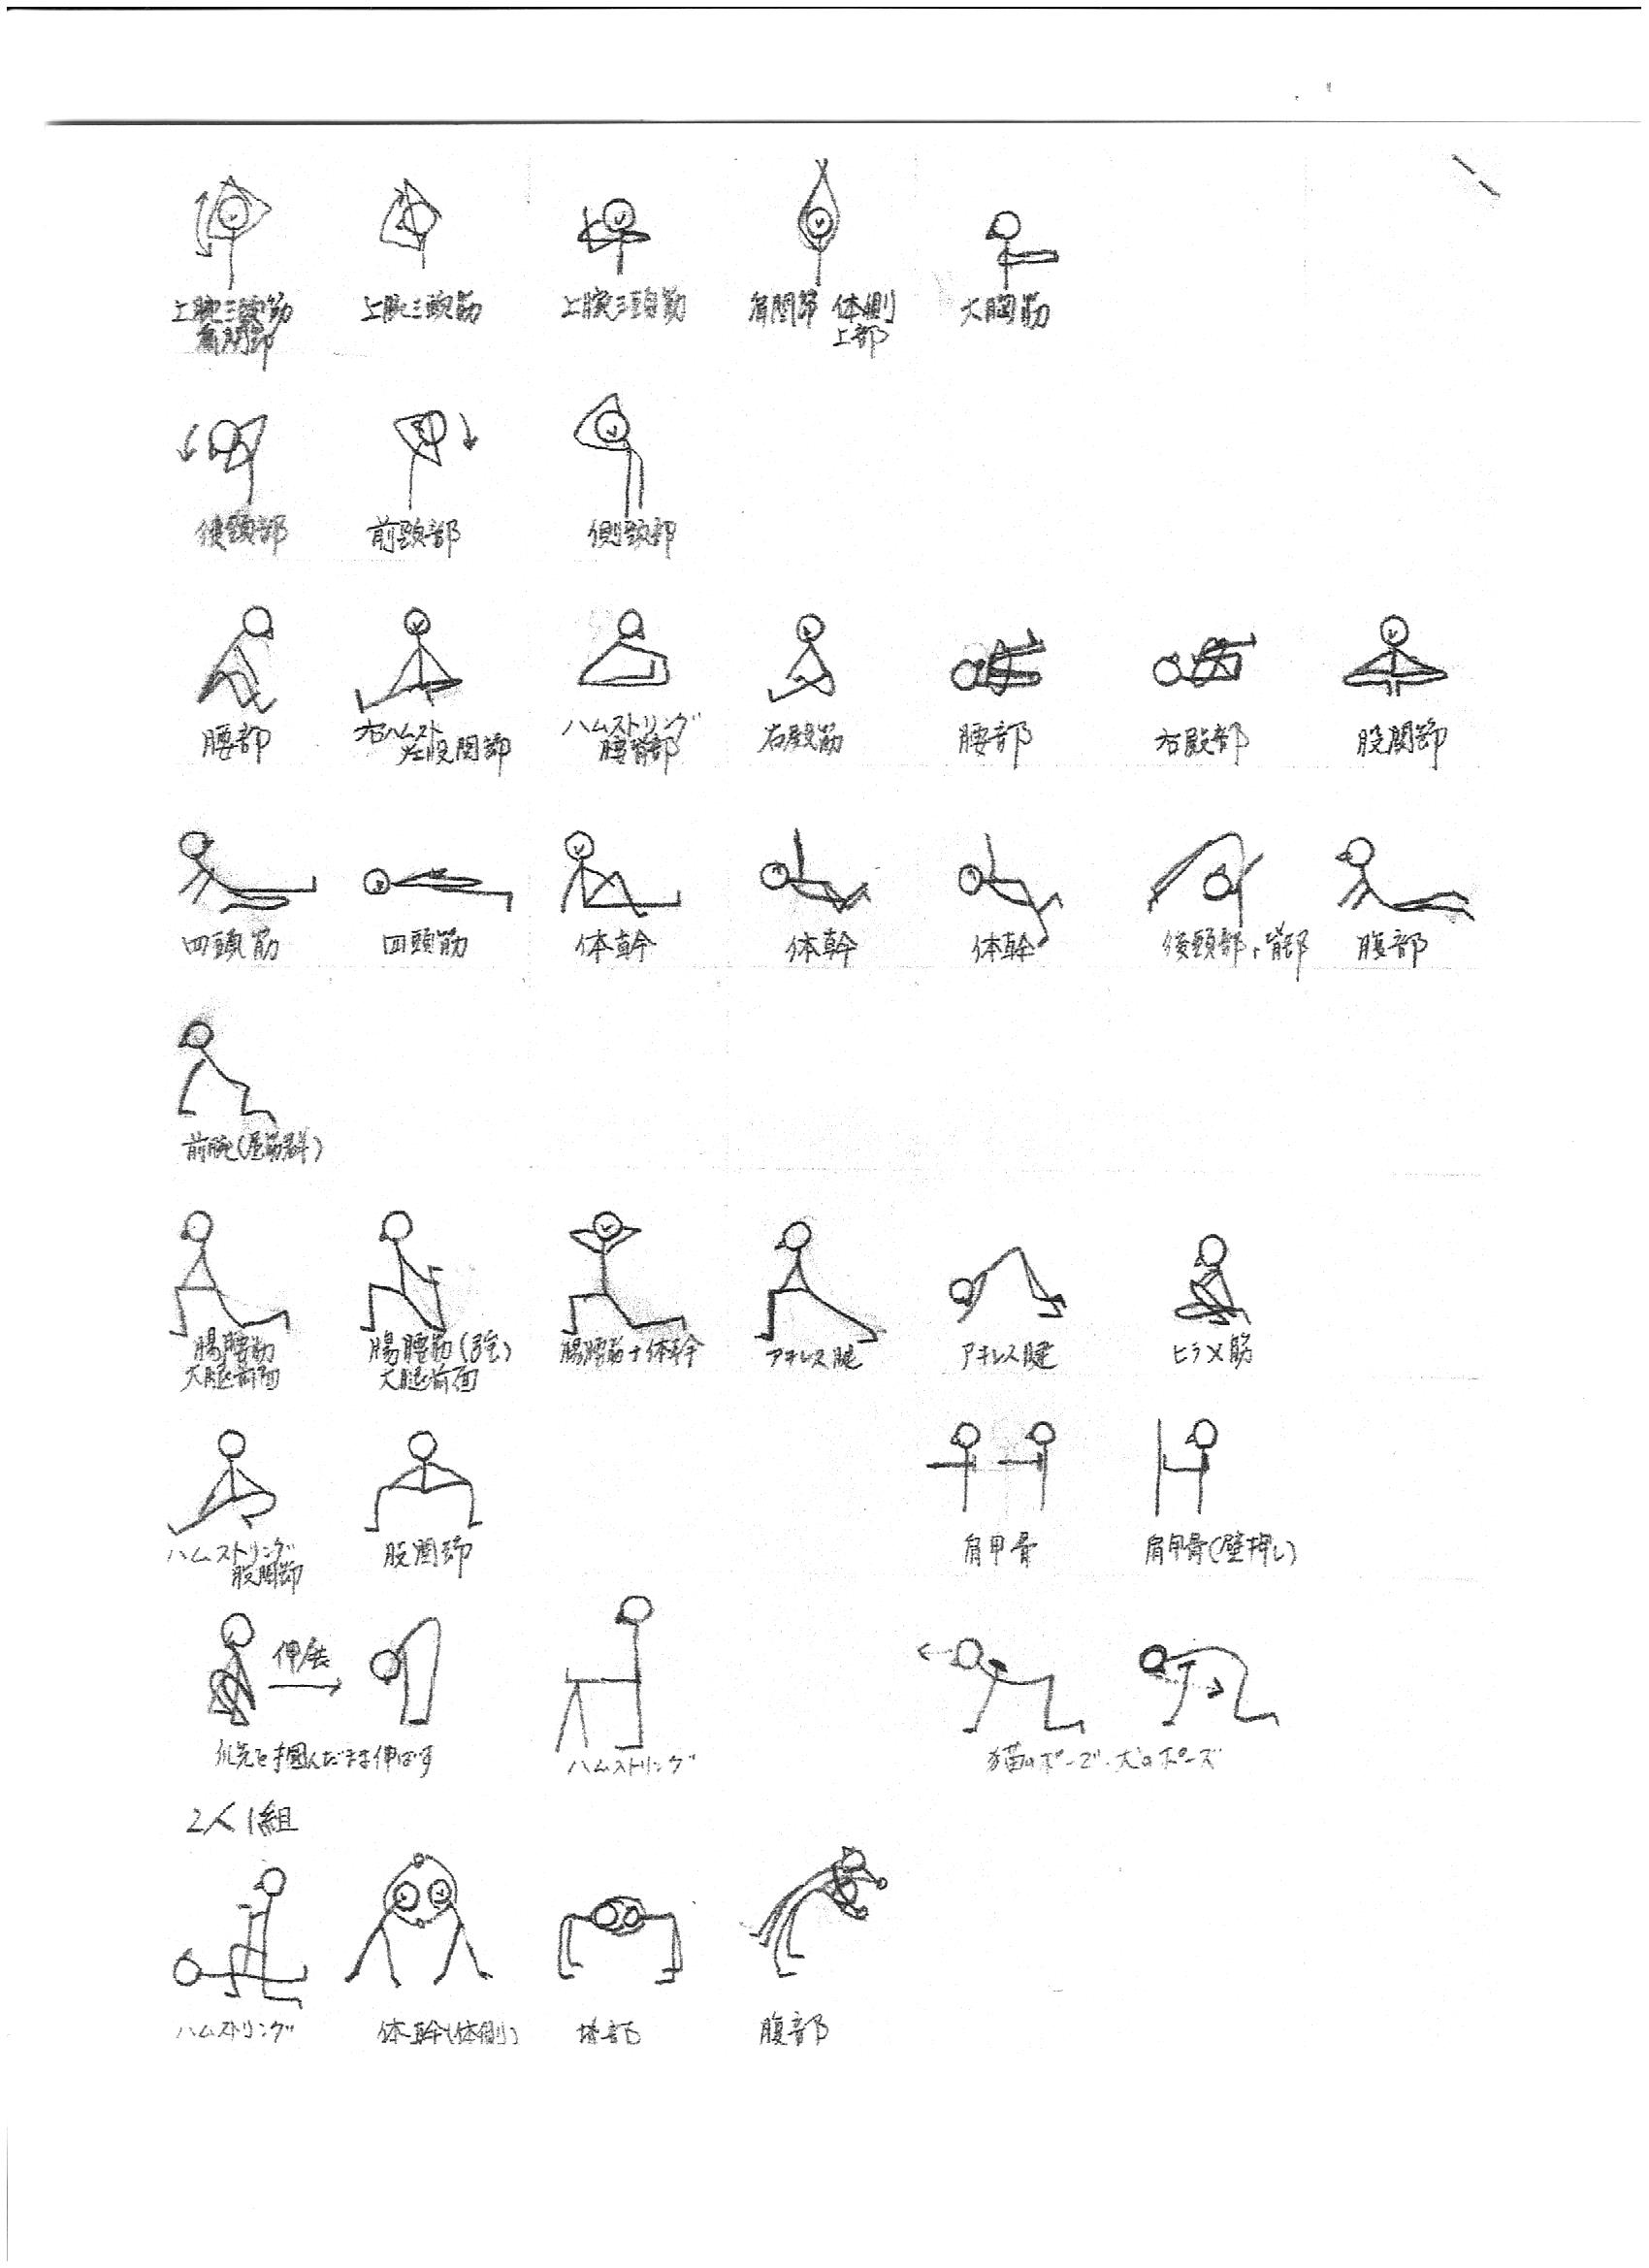 上腕三頭筋
肩関節
上腕三頭筋
上腕三頭筋
肩関節 体側
上部
大胸筋
後頸部
前頸部
側頸部
腰部
右ハムスト
左股関節
ハムストリング
腰背部
右殿筋
腰部
右殿部
股関節
四頭筋
四頭筋
体幹
体幹
体幹
後頸部、背部
腹部
前腕(屈筋群)
腸腰筋
大腿前面
腸腰筋(強)
大腿前面
腸腰筋+体幹
アキレス腱
アキレス腱
ヒラメ筋
ハムストリング
股関節
股関節
肩甲骨
肩甲骨(壁押し)
伸展
爪先を掴んだまま伸ばす
ハムストリング
猫のポーズ・犬のポーズ
2人1組
ハムストリング
体幹(体側)
腹部